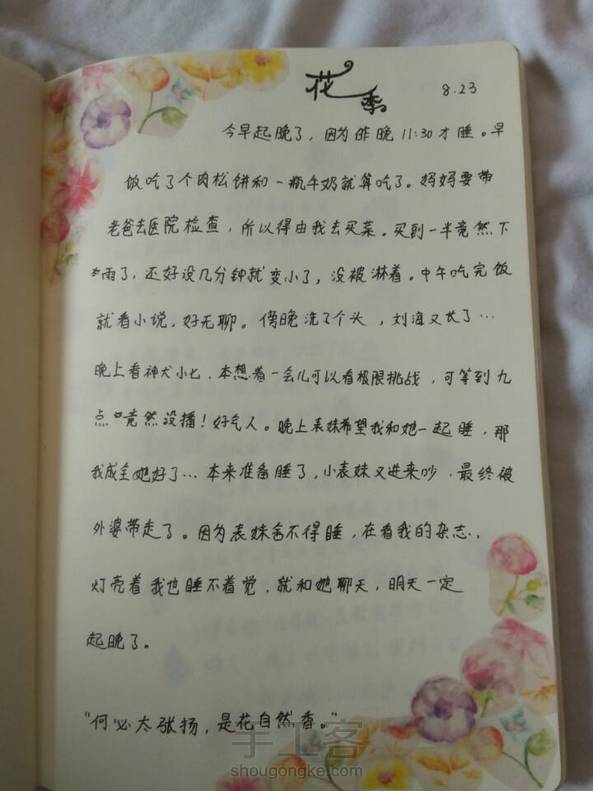 花季
8.23
今早起晚了,因为昨晚11:30才睡。早
饭吃了个肉松饼和一瓶牛奶就算吃了。妈妈要带
老爸去医院检查,所以得由我去买菜。买到一半竟然下
雨了,还好没几分钟就变小了,没被淋着。中午吃完饭
就看小说,好无聊。傍晚洗了个头,刘海又长了…
晚上看神犬小七.本想着一会儿可以看极限挑战,可等到九
点竟然没播!好气人。晚上表妹希望我和她一起睡,那
我成全她好了…本来准备睡了,小表妹又进来吵.最终被
外婆带走了。因为表妹舍不得睡,在看我的杂志,
灯亮着我也睡不着觉,就和她聊天,明天一定
起晚了。
"何必太张扬,是花自然香。"
手工客
shougongke.com